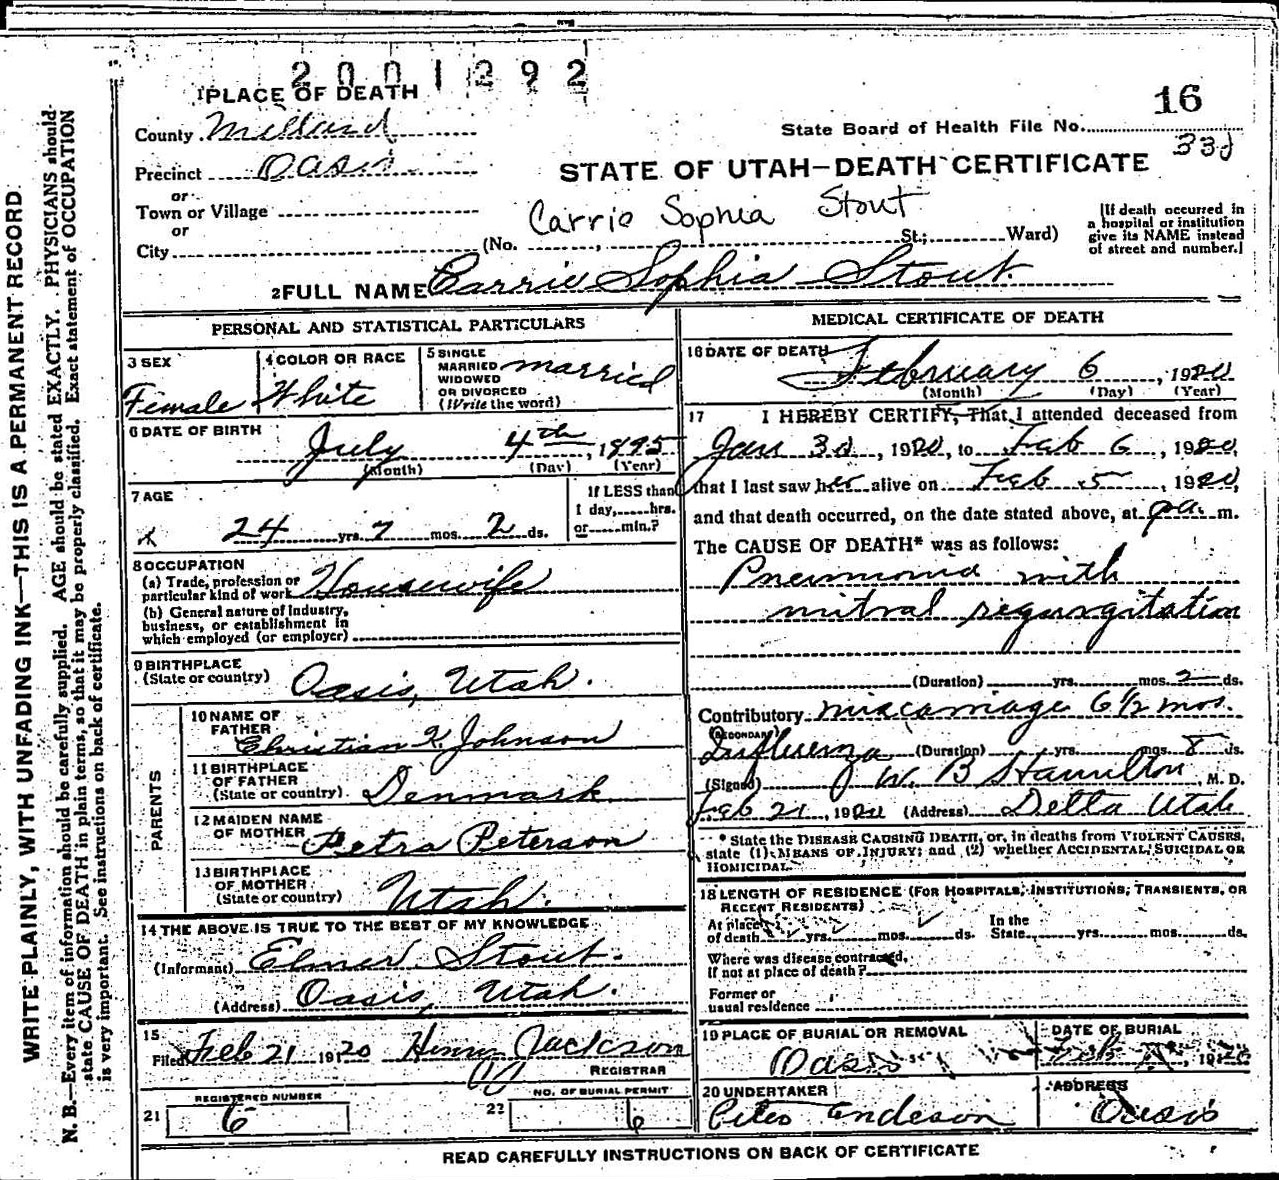 2001392
1 PLACE OF DEATH
16
County Millard
State Board of Health File No.
330
Precinct Oasis
STATE OF UTAH—DEATH CERTIFICATE
or
Town or Village
Carrie Sophia Stout
or
City (No. , St.; Ward)
[If death occurred in a hospital or institution give its NAME instead of street and number.]
2 FULL NAME Carrie Sophia Stout
PERSONAL AND STATISTICAL PARTICULARS
3 SEX Female
4 COLOR OR RACE White
5 SINGLE MARRIED WIDOWED OR DIVORCED (Write the word) married
6 DATE OF BIRTH
July 4th, 1895
(Month) (Day) (Year)
7 AGE
24 yrs. 7 mos. 2 ds.
If LESS than 1 day, hrs. or min.?
8 OCCUPATION
(a) Trade, profession or particular kind of work Housewife
(b) General nature of industry, business, or establishment in which employed (or employer)
9 BIRTHPLACE
(State or country) Oasis, Utah.
PARENTS
10 NAME OF FATHER Christian K. Johnson
11 BIRTHPLACE OF FATHER (State or country) Denmark
12 MAIDEN NAME OF MOTHER Petra Peterson
13 BIRTHPLACE OF MOTHER (State or country) Utah.
14 THE ABOVE IS TRUE TO THE BEST OF MY KNOWLEDGE
(Informant) Elmer Stout.
(Address) Oasis, Utah.
15
Filed Feb 21 1920 Henry Jackson
REGISTRAR
REGISTERED NUMBER
21 6
NO. OF BURIAL PERMIT
22 6
MEDICAL CERTIFICATE OF DEATH
16 DATE OF DEATH
February 6, 1920
(Month) (Day) (Year)
17 I HEREBY CERTIFY, That I attended deceased from
Jan 30, 1920, to Feb 6, 1920,
that I last saw her alive on Feb 5, 1920,
and that death occurred, on the date stated above, at m.
The CAUSE OF DEATH* was as follows:
Pneumonia with
mitral regurgitation
(Duration) yrs. mos. 2 ds.
Contributory miscarriage 6 1/2 mos.
(SECONDARY)
Influenza (Duration) yrs. mos. 8 ds.
(Signed) J W. B Hamilton, M. D.
Feb 21, 1920 (Address) Delta Utah
* State the DISEASE CAUSING DEATH, or, in deaths from VIOLENT CAUSES,
state (1) MEANS OF INJURY; and (2) whether ACCIDENTAL, SUICIDAL OR
HOMICIDAL.
18 LENGTH OF RESIDENCE (FOR HOSPITALS, INSTITUTIONS, TRANSIENTS, OR
RECENT RESIDENTS)
At place of death yrs. mos. ds. In the State yrs. mos. ds.
Where was disease contracted, if not at place of death?
Former or usual residence
19 PLACE OF BURIAL OR REMOVAL
Oasis
DATE OF BURIAL
Feb , 1920
20 UNDERTAKER
Peter Anderson
ADDRESS
Oasis
READ CAREFULLY INSTRUCTIONS ON BACK OF CERTIFICATE
WRITE PLAINLY, WITH UNFADING INK—THIS IS A PERMANENT RECORD
N. B.—Every item of information should be carefully supplied. AGE should be stated EXACTLY. PHYSICIANS should
state CAUSE OF DEATH in plain terms, so that it may be properly classified. Exact statement of OCCUPATION
is very important. See instructions on back of certificate.